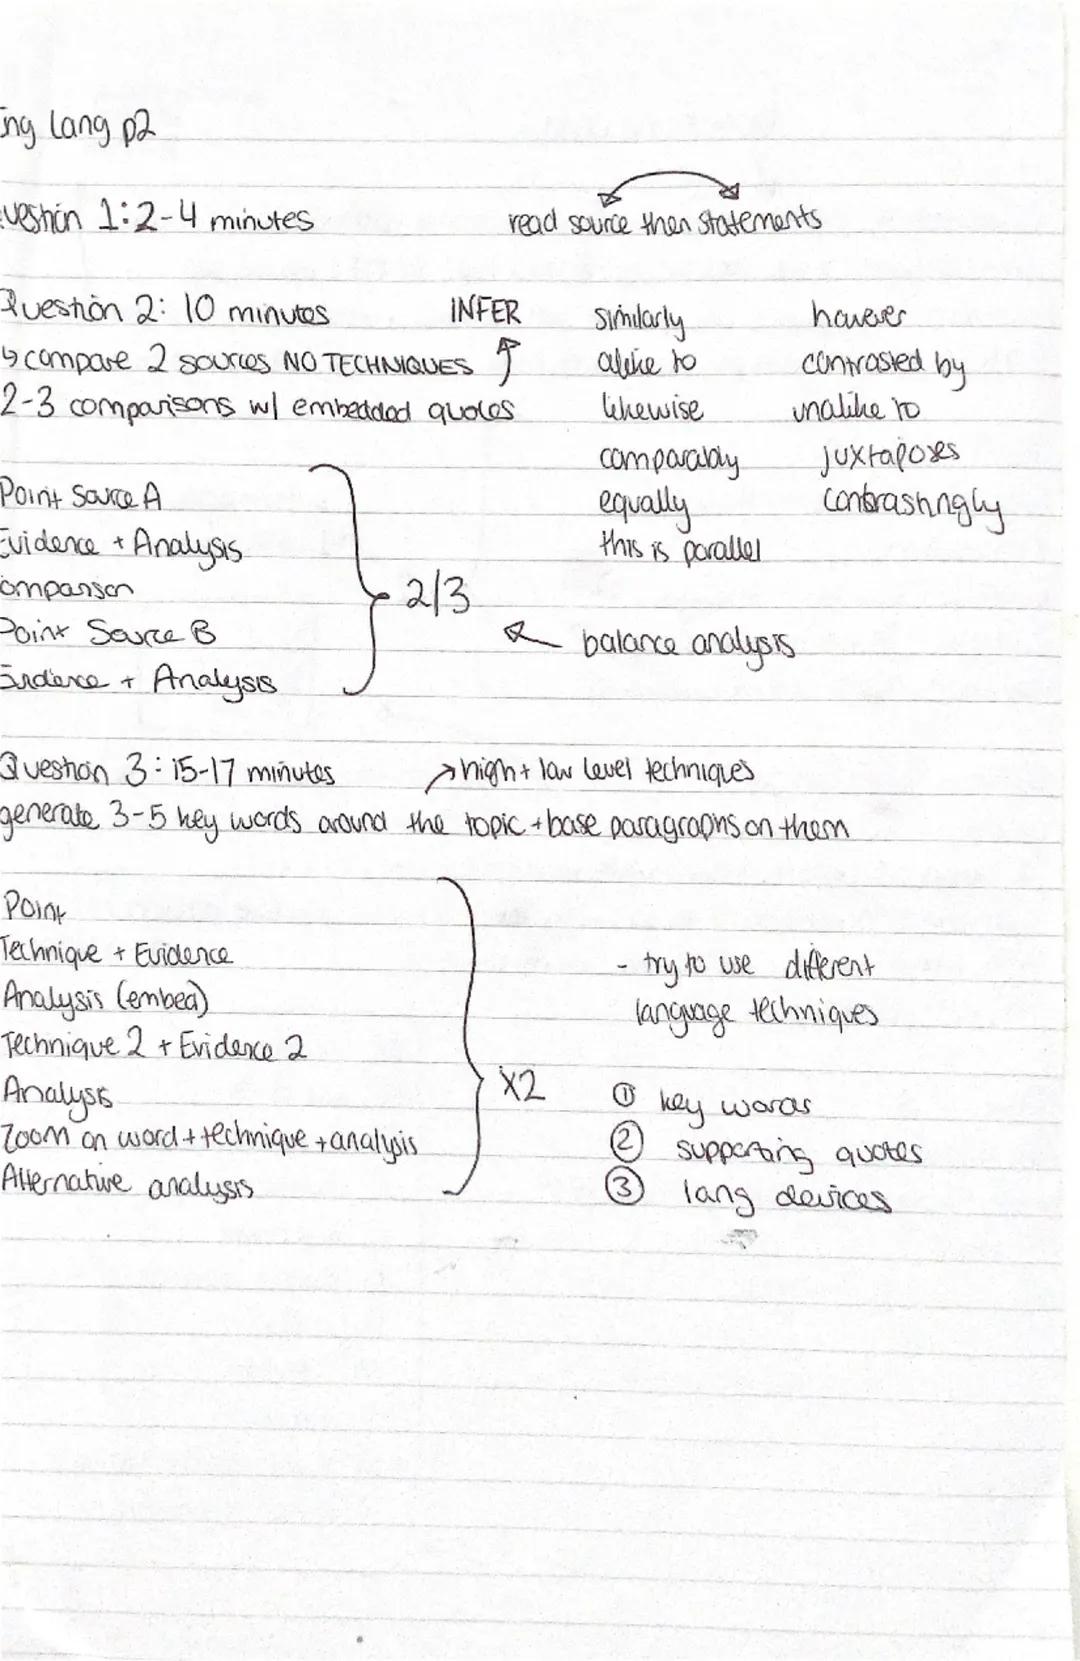 Eng Lang p2
Question 1: 2-4 minutes
read source then statements
Question 2: 10 minutes
INFER
↳ compare 2 sources NO TECHNIQUES
2-3 comparisons w/ embedded quotes
similarly
alike to
likewise
comparably
equally
this is parallel
however
contrasted by
unalike to
juxtaposes
contrastingly
Point Source A
Evidence + Analysis
omparison
Point Source B
Evidence + Analysis
2/3
balance analysis
Question 3: 15-17 minutes
high + low level techniques
generate 3-5 key words around the topic + base paragraphs on them
Point
Technique + Evidence
Analysis (embed)
Technique 2 + Evidence 2
Analysis
Zoom on word + technique + analysis
Alternative analysis
x2
- try to use different
language techniques
① key words
② supporting quotes
③ lang devices